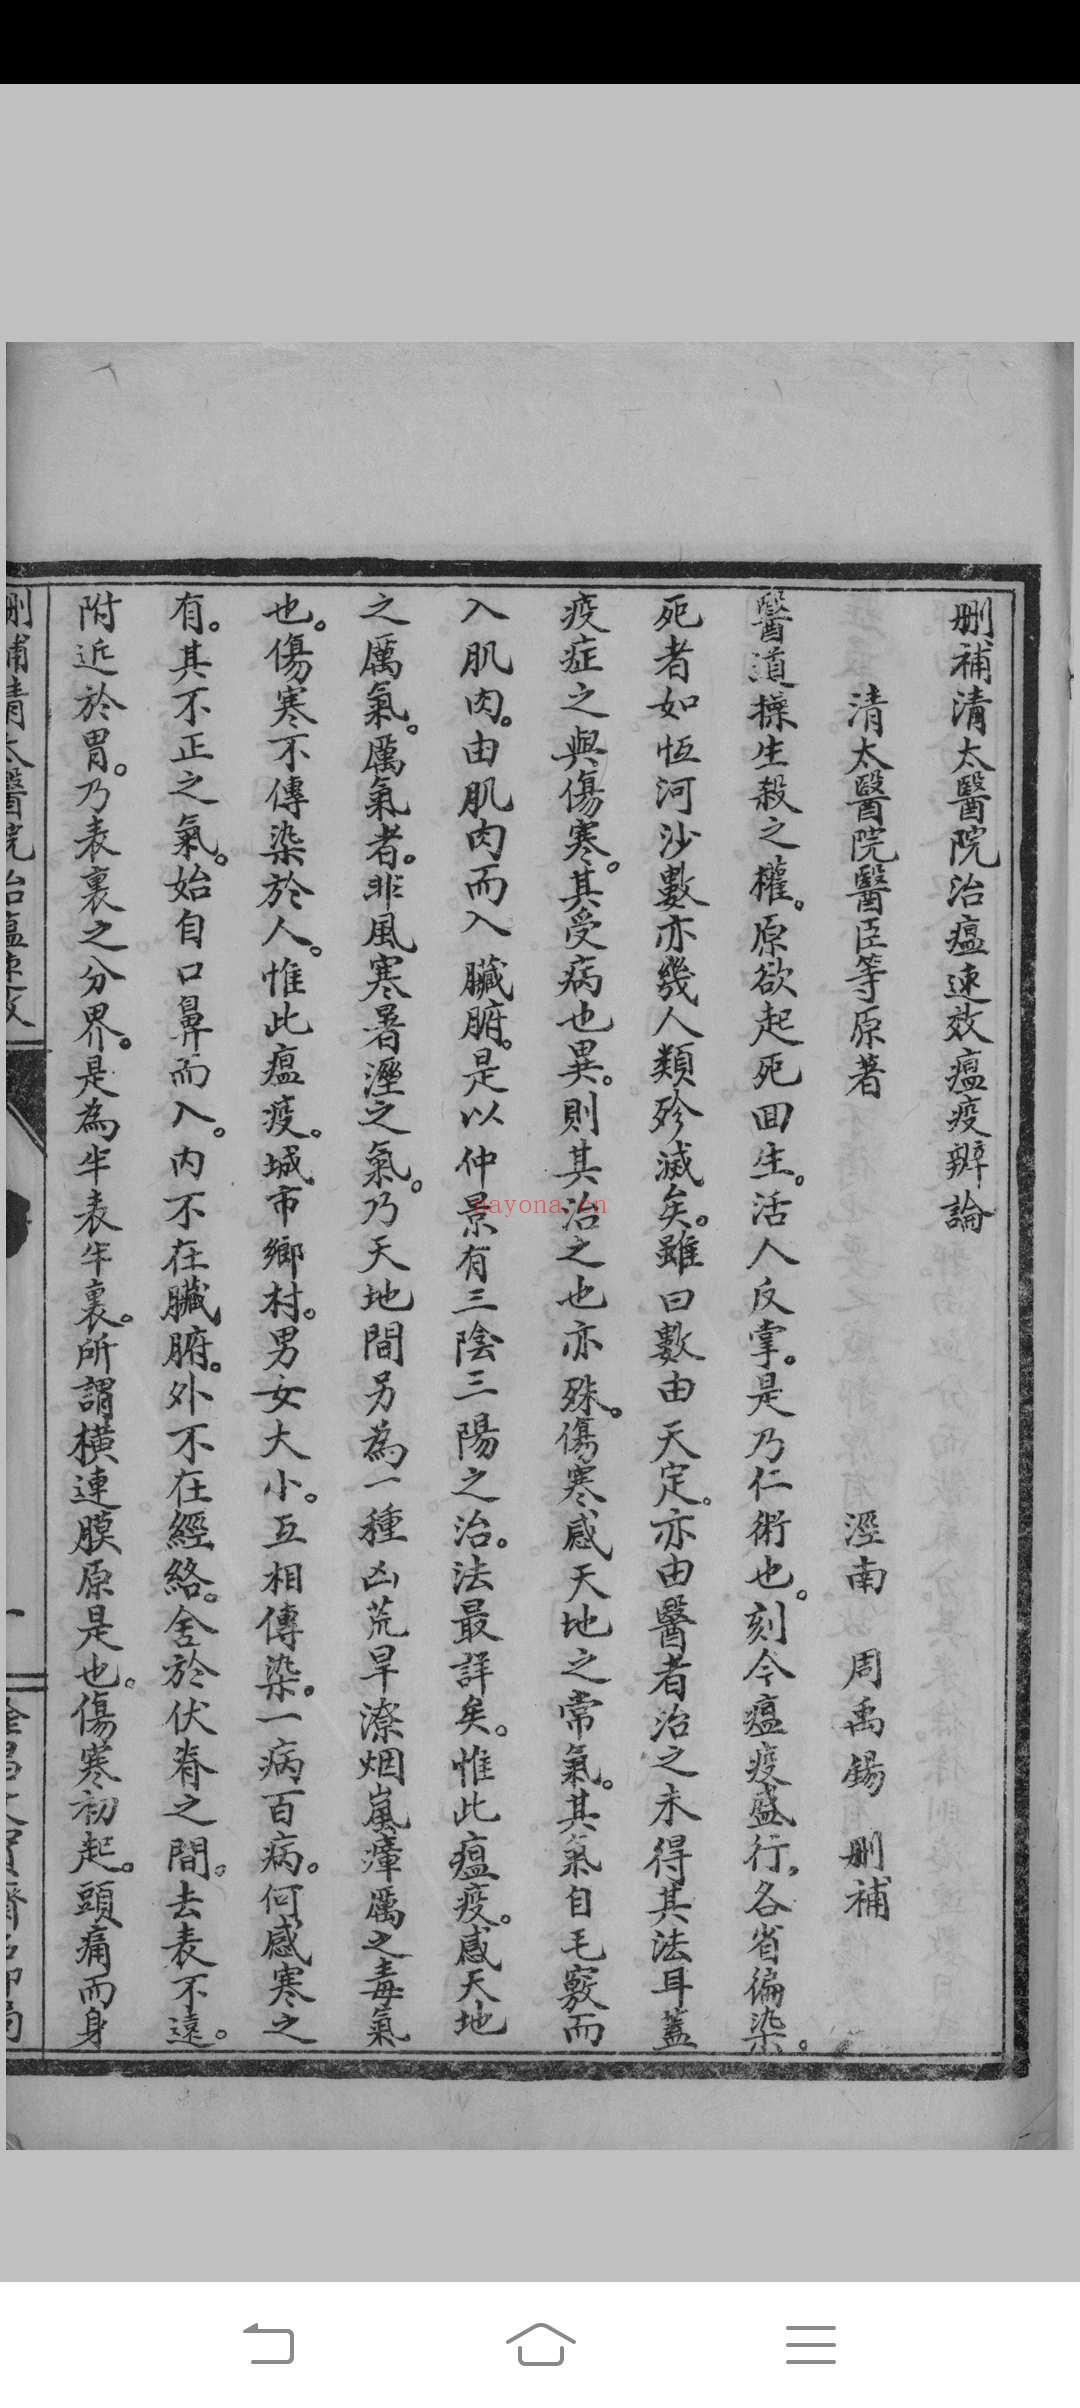 删補清太醫院治瘟速效瘟疫辨論
清太醫院醫臣等原著　涇南　周禹錫　删補
醫道操生殺之權。原欲起死回生。活人反掌。是乃仁術也。刻今瘟疫盛行。各省徧染。
死者如恆河沙數亦幾人類殄滅矣。雖曰數由天定。亦由醫者治之未得其法耳蓋
疫症之與傷寒。其受病也異。則其治之也亦殊。傷寒感天地之常氣。其氣自毛竅而
入肌肉。由肌肉而入臟腑。是以仲景有三陰三陽之治。法最詳矣。惟此瘟疫。感天地
之厲氣。厲氣者。非風寒暑溼之氣。乃天地間另為一種凶荒旱潦烟嵐瘴厲之毒氣
也。傷寒不傳染於人。惟此瘟疫。城市鄉村。男女大小。互相傳染。一病百病。何感寒之
有。其不正之氣。始自口鼻而入。内不在臟腑。外不在經絡。舍於伏脊之間。去表不遠。
附近於胃。乃表裏之分界。是為半表半裏。所謂橫連膜原是也。傷寒初起。頭痛而身
删補清太醫院治瘟速效
一
nayona.cn